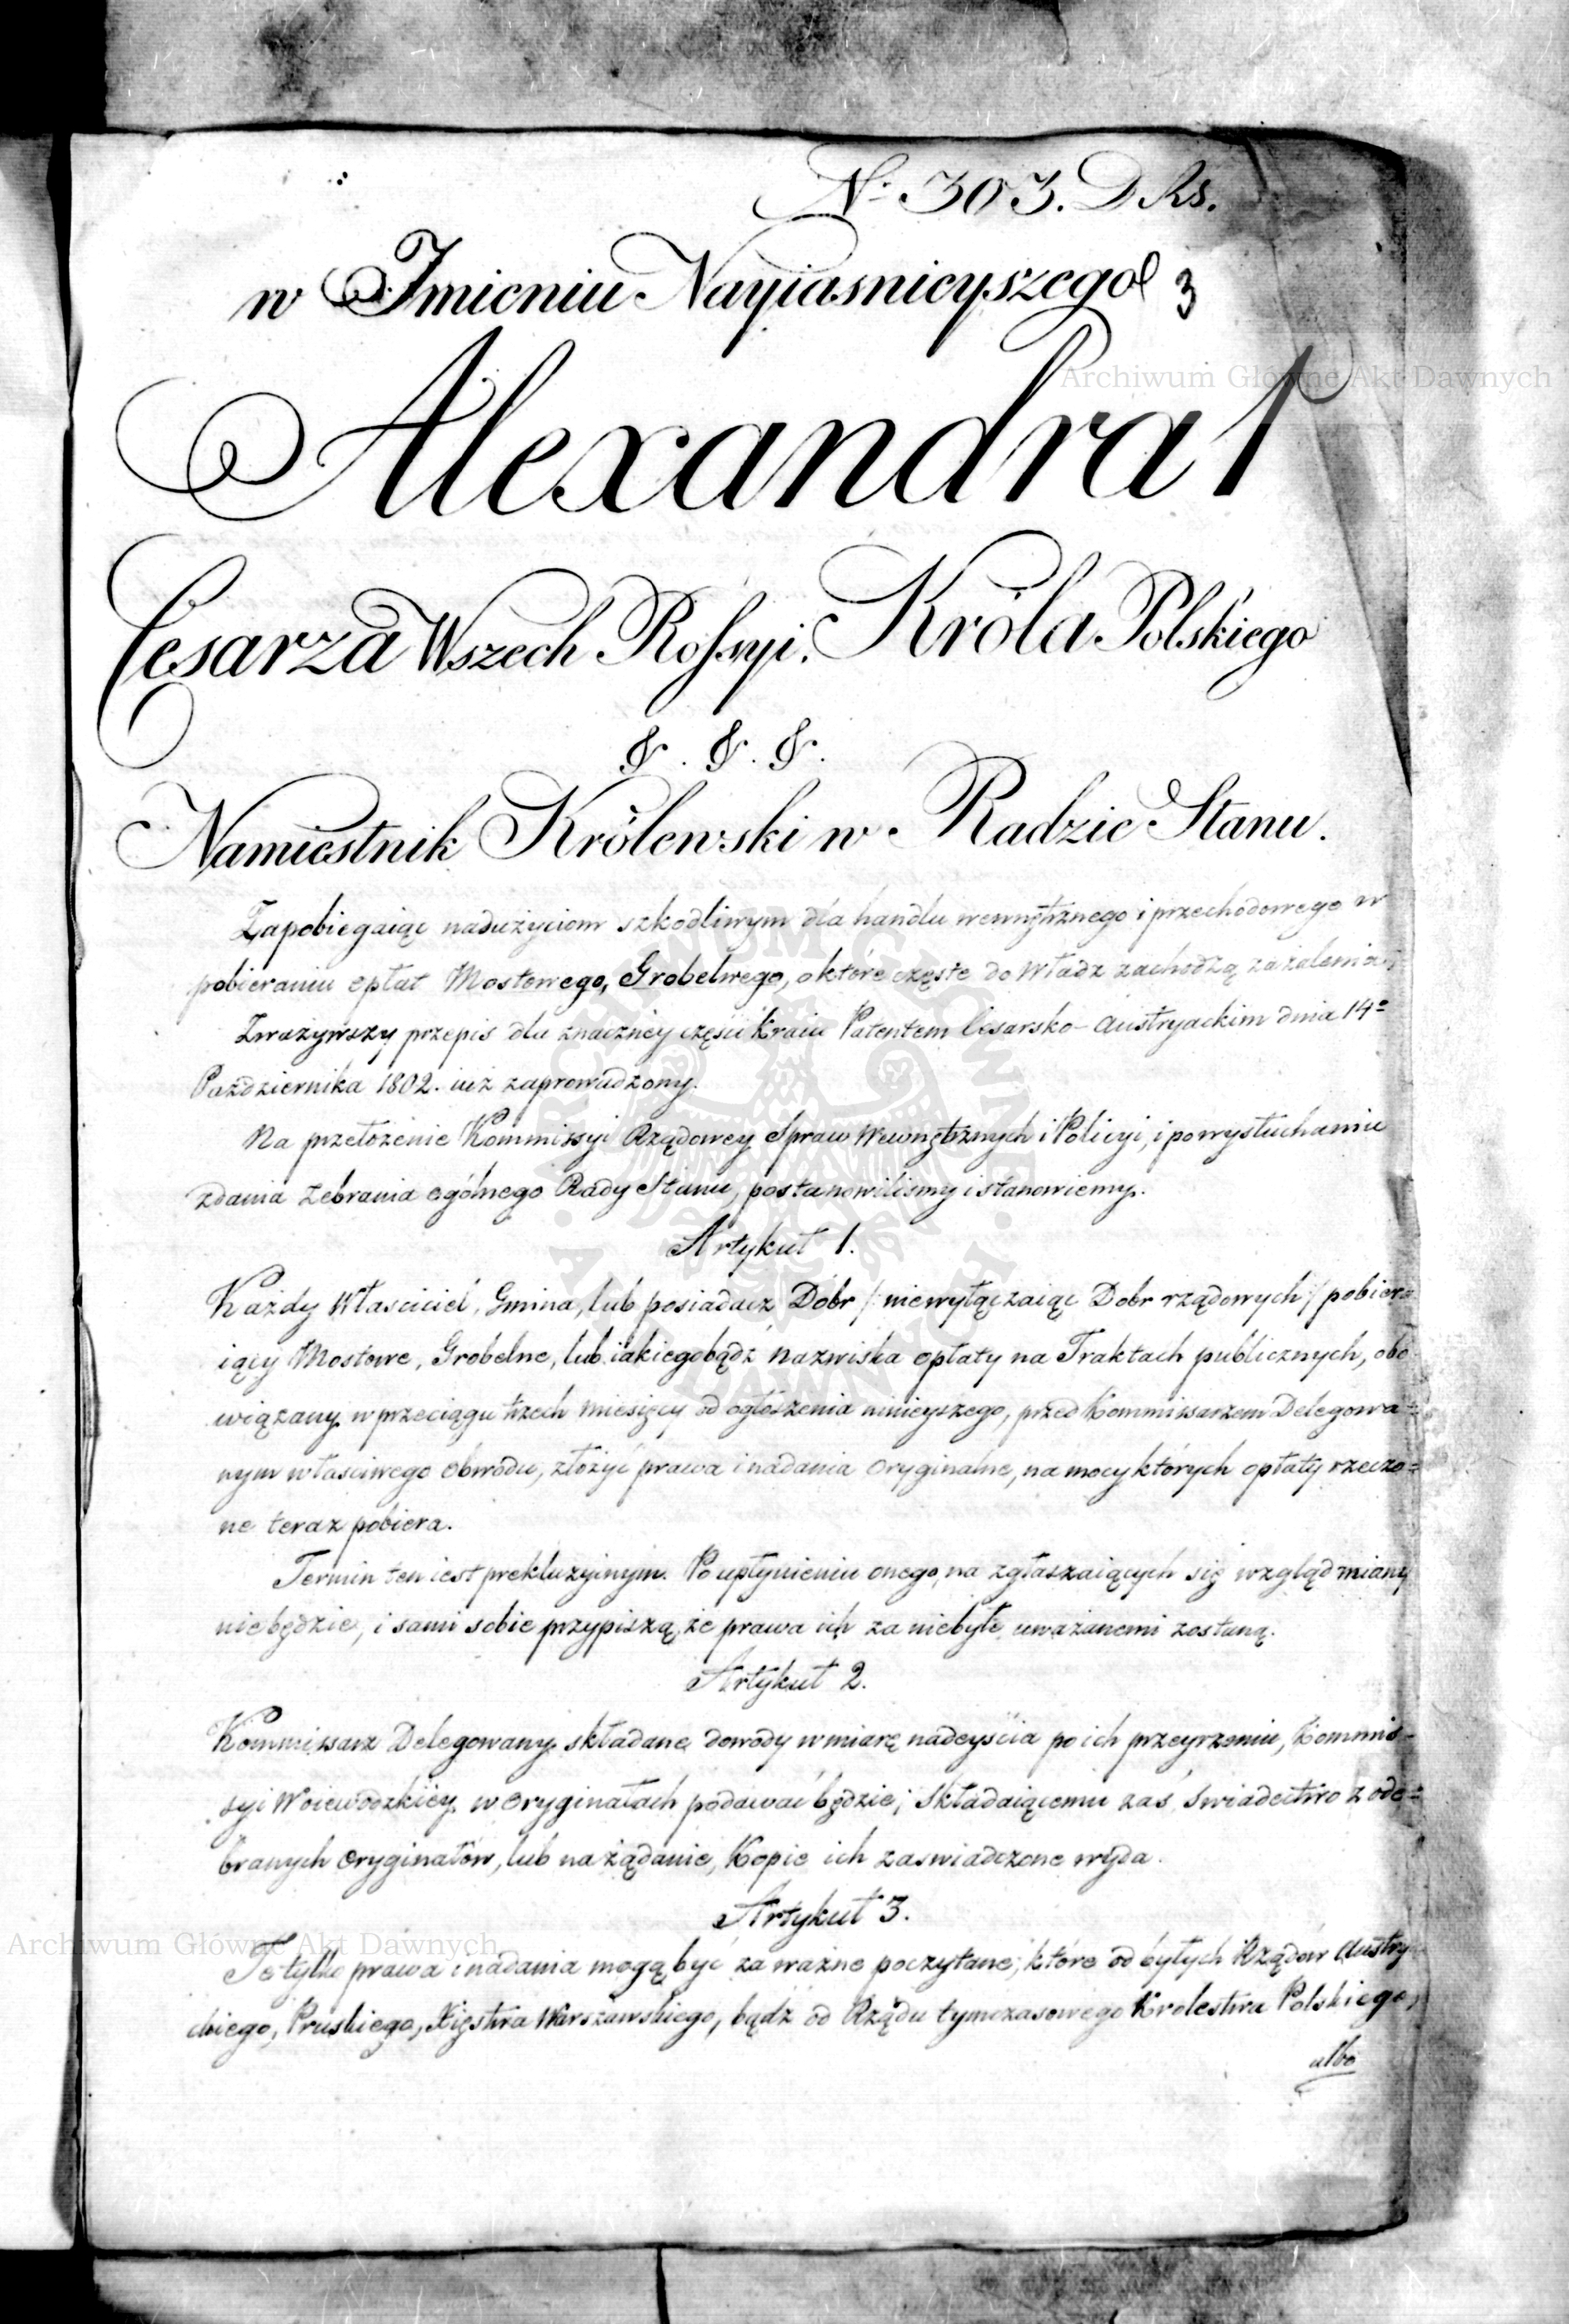 N: 303. D Rs.
w Imieniu Nayiasnieyszego 3
Alexandra I
Cesarza Wszech Rossyi, Króla Polskiego
&. &. &.
Namiestnik Królewski w Radzie Stanu.
Zapobiegaiąc nadużyciom szkodliwym dla handlu wewnętrznego i przechodowego w
pobieraniu opłat Mostowego, Grobelnego, o które częste do Władz zachodzą zażalenia;
Zważywszy przepis dla znaczney części Kraiu Patentem Cesarsko-Austryackim dnia 14º
Października 1802. iuż zaprowadzony.
Na przełożenie Kommissyi Rządowey Spraw Wewnętrznych i Policyi, i po wysłuchaniu
zdania Zebrania ogólnego Rady Stanu, postanowiliśmy i stanowiemy.
Artykuł 1.
Każdy Właściciel, Gmina, lub posiadacz Dóbr /: niewyłączaiąc Dobr rządowych :/ pobiera-
iący Mostowe, Grobelne, lub iakiegobądź nazwiska opłaty na Traktach publicznych, obo-
wiązany w przeciągu trzech miesięcy od ogłoszenia ninieyszego, przed Kommissarzem Delegowa=
nym właściwego obwodu, złożyć prawa i nadania oryginalne, na mocy których opłaty rzeczo=
ne teraz pobiera.
Termin ten iest prekluzyinym. Po upłynieniu onego, na zgłaszaiących się wzgląd miany
niebędzie, i sami sobie przypiszą, że prawa ich za niebyłe uważanemi zostaną.
Artykuł 2.
Kommissarz Delegowany składane dowody w miarę nadeyścia po ich przeyrzeniu, Kommis-
syi Woiewodzkiey w oryginałach podawać będzie; składaiącemu zaś świadectwo z ode=
branych oryginałów, lub na żądanie, Kopie ich zaświadczone wyda.
Artykuł 3.
Te tylko prawa i nadania mogą być za ważne poczytane, które od byłych Rządów Austry-
ckiego, Pruskiego, Xięstwa Warszawskiego, bądź od Rządu tymczasowego Krolestwa Polskiego,
albo
Archiwum Główne Akt Dawnych
Archiwum Główne Akt Dawnych
ARCHIWUM GŁÓWNE AKT DAWNYCH